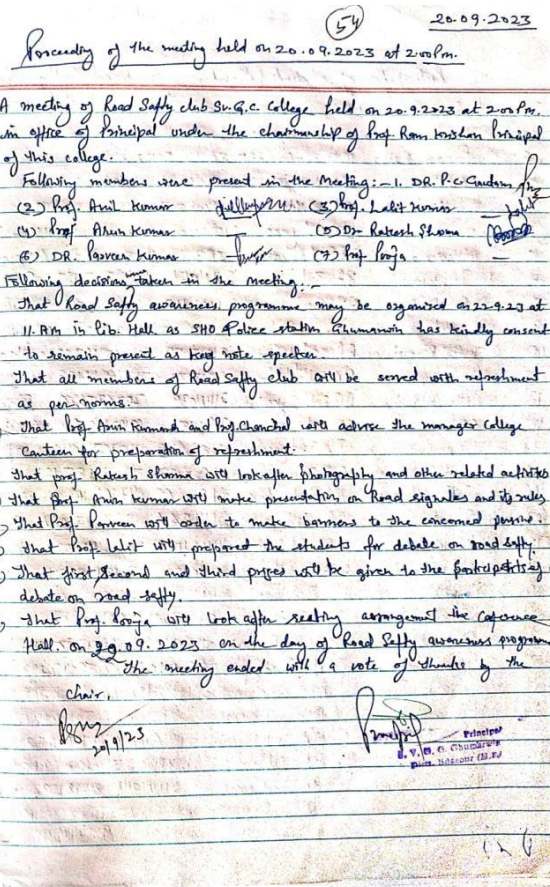 54
20.09.2023
Proceeding of the meeting held on 20.09.2023 at 2:00 Pm.
A meeting of Road Safty club Sv.G.C. College held on 20.9.2023 at 2.00 Pm.
in office of Principal under the chairmanship of Prof. Ram Krishan Principal
of this college.
Following members were present in the Meeting:- 1. DR. P.C Gautam
(2) Prof. Anil Kumar (3) Prof. Lalit Kumar
(4) Prof Arun Kumar (5) Dr Rakesh Sharma
(6) DR. Parveen Kumar (7) Prof Pooja
Following decisions were taken in the meeting:-
That Road Safty awareness programme may be organised on 22-9-23 at
11. AM in Lib. Hall as SHO Police station Ghumarwin has kindly consent
to remain present as key note speaker.
That all members of Road Safty club will be served with refreshment
as per norms.
That Prof Arun Kumar and Prof. Chanchal will advise the manager College
Canteen for preparation of refreshment.
That prof Rakesh Sharma will look after photography and other related activites
That Prof Arun Kumar will make presentation on Road signales and its rules
That Prof. Parveen will order to make banners to the concerned
That Prof lalit will prepared the students for debate on road safty.
That first, Second and third prizes will be given to the participants of
debate on road safty.
That Prof. Pooja will look after seating arrangement the
Hall. on 09.2023 on the day of Road Safty awareness programm
The meeting ended with a vote of thanks by the
chair.
20/9/23
Principal
Principal
S. V. G. C. Ghumarwin
Distt. Bilaspur (H.P.)